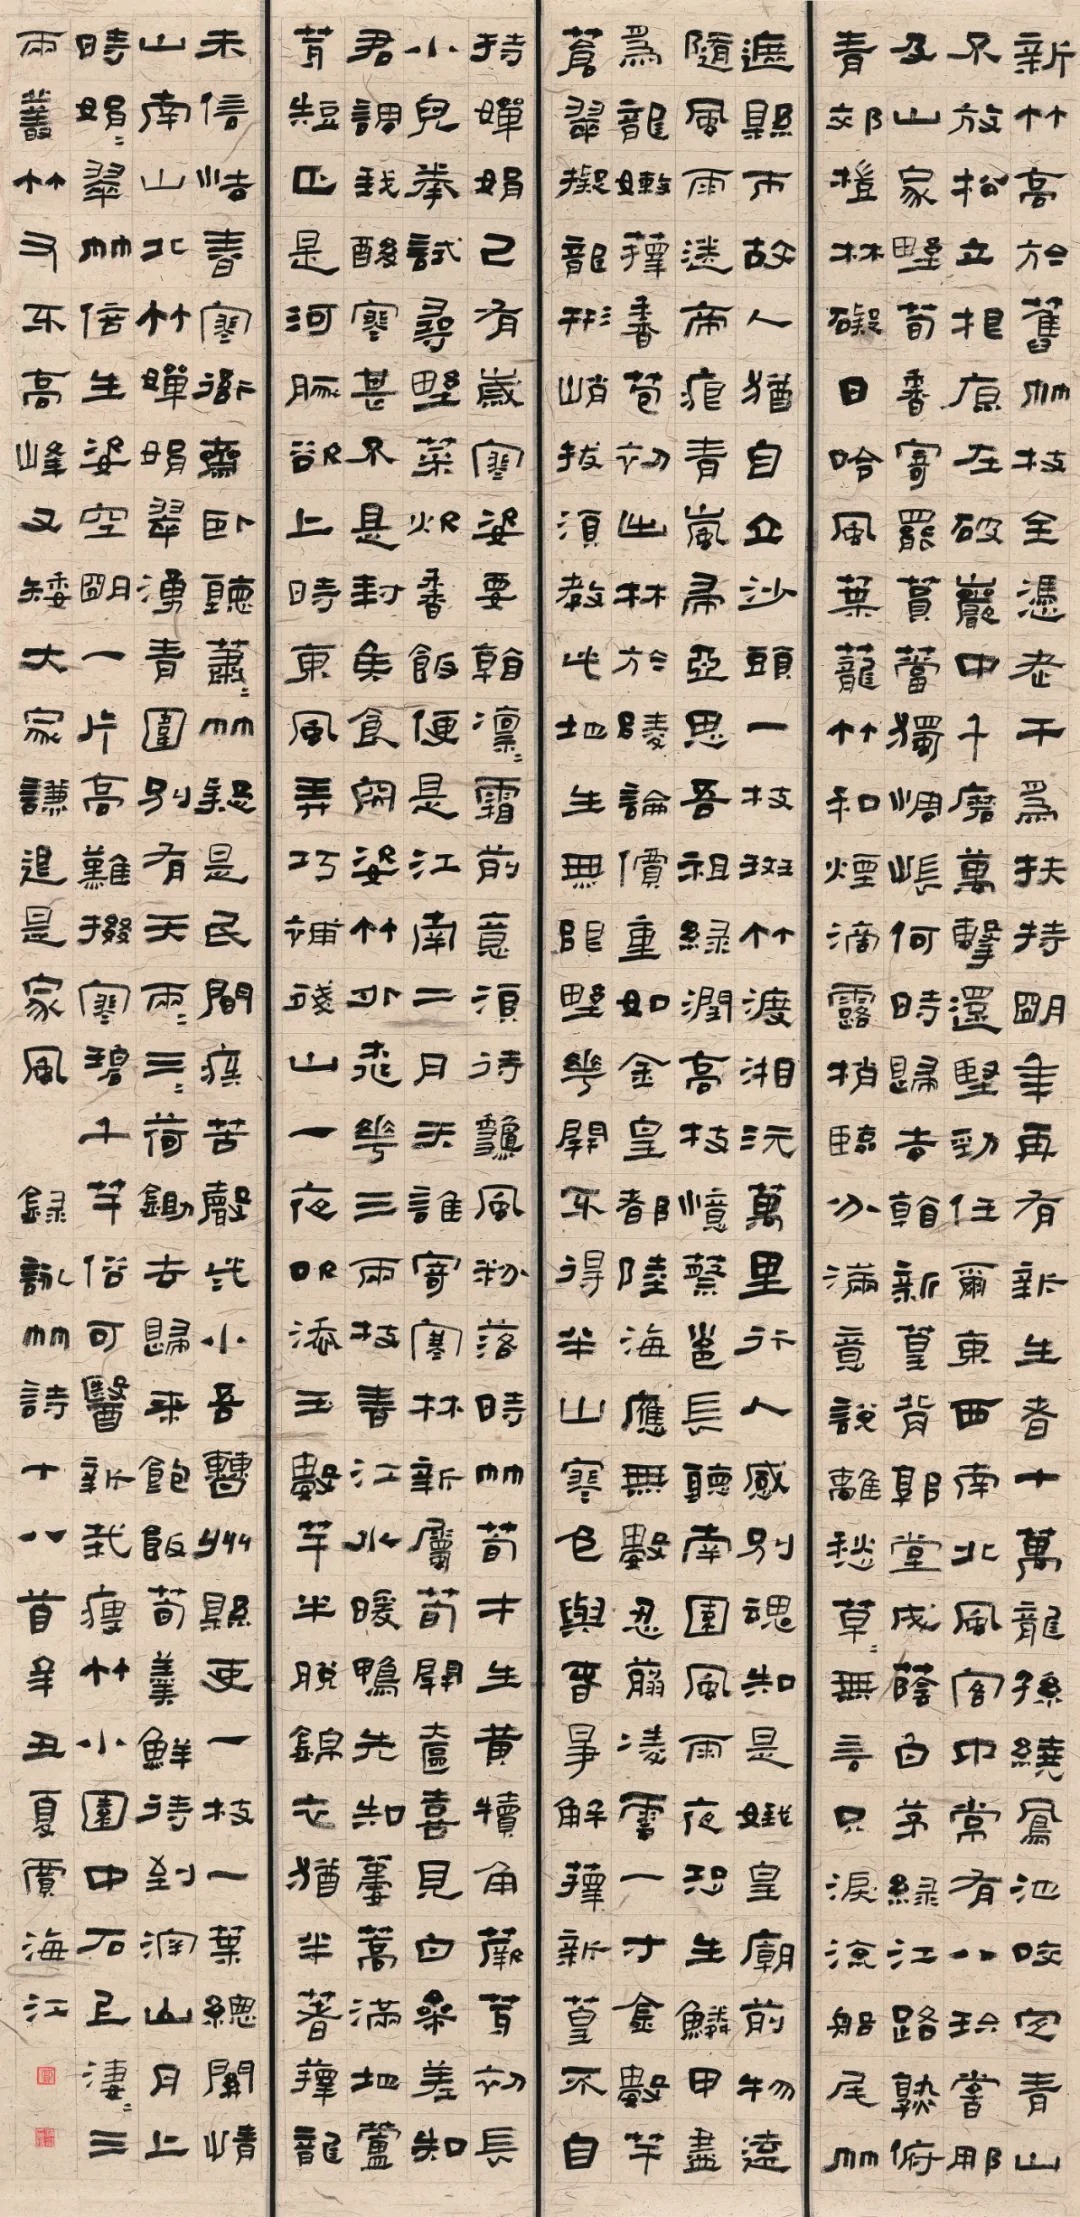 新竹高於舊竹枝全憑老干為扶持明年再有新生者十萬龍孫繞鳳池咬定青山
不放松立根原在破巖中千磨萬擊還堅勁任爾東西南北風客中常有八珍嘗那
及山家野筍香寄罷簹獨惆悵何時歸去翰新篁背郭堂成蔭白茅緣江路熟俯
青郊榿林礙日吟風葉籠竹和煙滴露梢臨分滿意說離愁草草無言只淚流船尾竹
遮縣市故人猶自立沙頭一枝斑竹渡湘沅萬里行人感別魂知是娥皇廟前物遠
隨風雨送啼痕青嵐帚亞思吾祖綠潤高枝憶蔡邕長聽南園風雨夜恐生鱗甲盡
為龍嫩籜香苞初出林於陵論價重如金皇都陸海應無數忍剪凌雲一寸金數竿
蒼翠擬龍形峭拔須教此地生無限野花開不得半山寒色與春爭解籜新篁不自
持嬋娟已有歲寒姿要翰凜凜霜前意須待飄風粉落時竹筍才生黃犢角蕨芽初長
小兒拳試尋野菜炊香飯便是江南二月天誰寄寒林新屬筍開奩喜見白參差知
君調我酸寒甚不是封侯食閑姿竹外桃花三兩枝春江水暖鴨先知蔞蒿滿地蘆
芽短正是河豚欲上時東風弄巧補殘山一夜吹添玉數竿半脫錦衣猶半著籜龍
未信怯春寒衙齋臥聽蕭蕭竹疑是民間疾苦聲些小吾曹州縣吏一枝一葉總關情
山南山北竹嬋娟翠湧青圍別有天兩兩三三荷鋤去歸來飽飯筍羹鮮待到深山月上
時娟娟翠竹倍生姿空明一片高難掇寒碧千竿俗可醫新栽瘦竹小園中石上凄凄三
兩叢竹又不高峰又矮大家謙退是家風 錄詠竹詩十八首辛丑夏賈海江